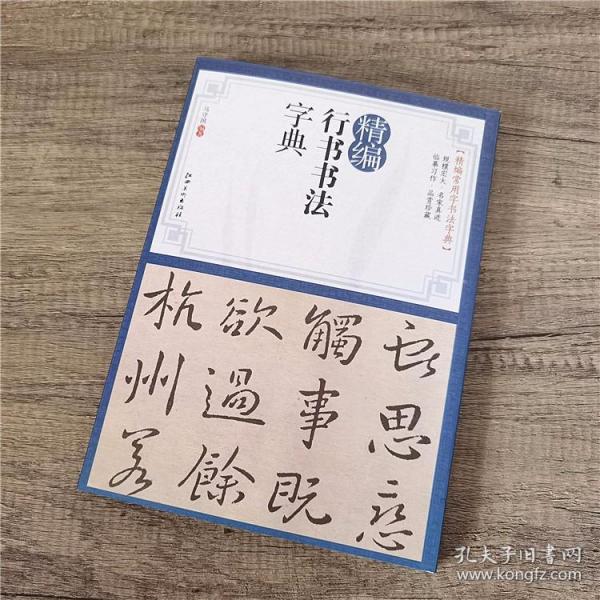 精编
行书书法
字典
【精编常用字书法字典】
规模宏大 名家真迹
临摹习作 品赏珍藏
江西美术出版社
思恋
觸事既
欲過餘
杭州若
孔夫子旧书网
www.kongfz.com